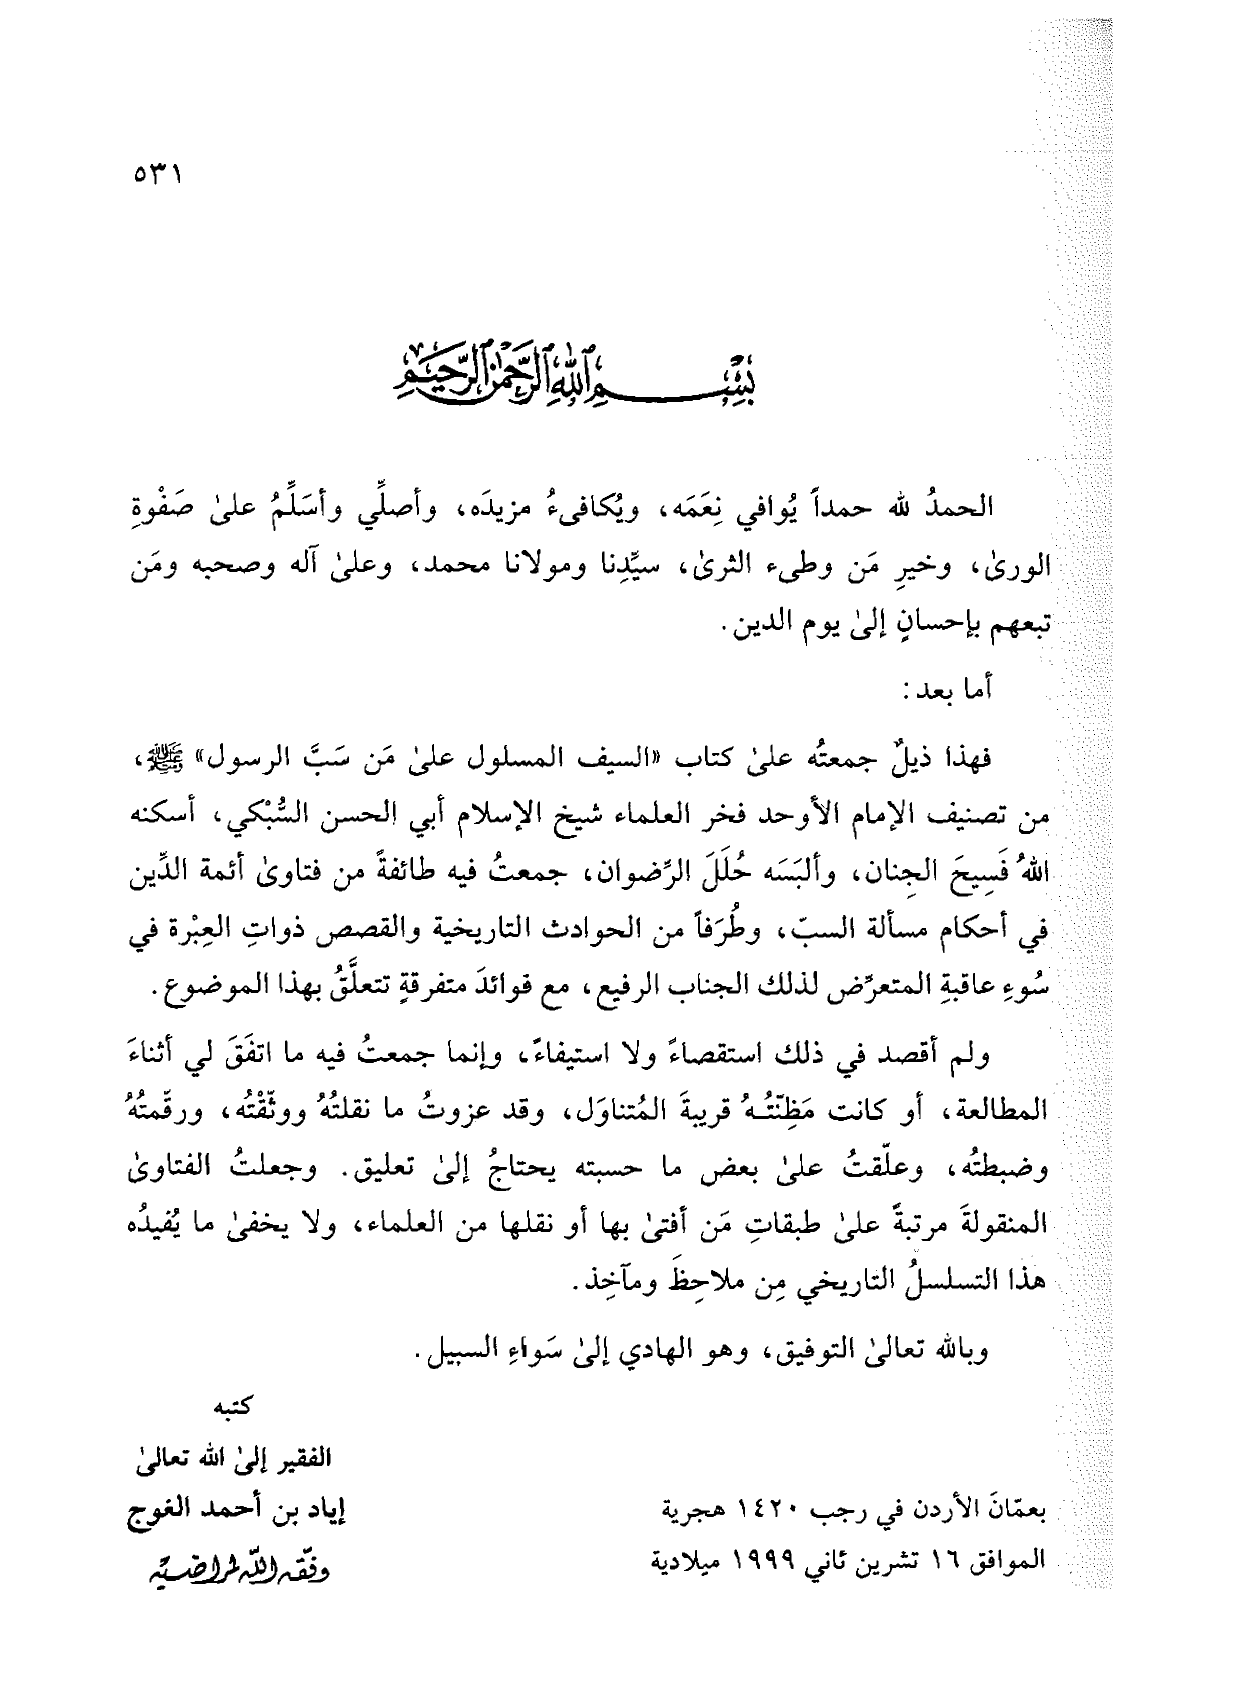 ٥٣١
بِسْمِ اللَّهِ الرَّحْمَٰنِ الرَّحِيمِ
الحمدُ لله حمداً يُوافي نِعَمَه، ويُكافىءُ مزيدَه، وأصلِّي وأسَلِّمُ علىٰ صَفْوةِ
الورىٰ، وخيرِ مَن وطىء الثرىٰ، سيِّدِنا ومولانا محمد، وعلىٰ آله وصحبه ومَن
تبعهم بإحسانٍ إلىٰ يوم الدين.
أما بعد:
فهذا ذيلٌ جمعتُه علىٰ كتاب «السيف المسلول علىٰ مَن سَبَّ الرسول» ﷺ،
من تصنيف الإمام الأوحد فخر العلماء شيخ الإسلام أبي الحسن السُّبْكي، أسكنه
اللهُ فَسِيحَ الجِنان، وألبَسَه حُلَلَ الرِّضوان، جمعتُ فيه طائفةً من فتاوىٰ أئمة الدِّين
في أحكام مسألة السبّ، وطُرَفاً من الحوادث التاريخية والقصص ذواتِ العِبْرة في
سُوءِ عاقبةِ المتعرِّض لذلك الجناب الرفيع، مع فوائدَ متفرقةٍ تتعلَّقُ بهذا الموضوع.
ولم أقصد في ذلك استقصاءً ولا استيفاءً، وإنما جمعتُ فيه ما اتفَقَ لي أثناءَ
المطالعة، أو كانت مَظِنّتُهُ قريبةَ المُتناوَل، وقد عزوتُ ما نقلتُهُ ووثّقْتُه، ورقّمتُهُ
وضبطتُه، وعلّقتُ علىٰ بعض ما حسبته يحتاجُ إلىٰ تعليق. وجعلتُ الفتاوىٰ
المنقولةَ مرتبةً علىٰ طبقاتِ مَن أفتىٰ بها أو نقلها من العلماء، ولا يخفىٰ ما يُفيدُه
هذا التسلسلُ التاريخي مِن ملاحِظَ ومآخِذ.
وبالله تعالىٰ التوفيق، وهو الهادي إلىٰ سَواءِ السبيل.
كتبه
الفقير إلىٰ الله تعالىٰ
إياد بن أحمد الغوج
وفّقه اللّه لمراضيه
بعمّانَ الأردن في رجب ١٤٢٠ هجرية
الموافق ١٦ تشرين ثاني ١٩٩٩ ميلادية